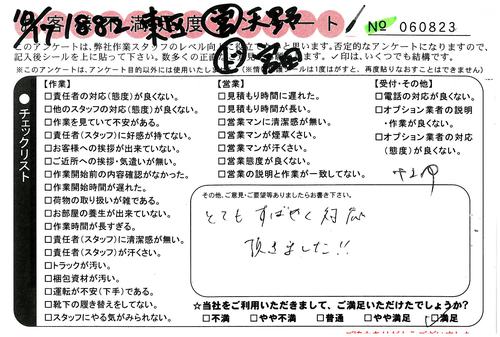 18/17 18812 東区 営 天野
お客様満足度アンケート № 060823
このアンケートは、弊社作業スタッフのレベル向上に役立て
と思います。否定的なアンケートになりますので、
記入後シールを上に貼って下さい。数多くの正直な
✓印は、いくつでも結構です。
※このアンケートは、アンケート目的以外には使用いたしません
シールは1度はがすと、再度貼りなおすことはできません)
チェックリスト
【作業】
□責任者の対応(態度)が良くない。
□他のスタッフの対応(態度)が良くない。
□作業を見ていて不安がある。
□責任者(スタッフ)に好感が持てない。
□お客様への挨拶が出来ていない。
□ご近所への挨拶・気遣いが無い。
□作業開始前の内容確認がなかった。
□作業開始時間が遅れた。
□荷物の取り扱いが雑である。
□お部屋の養生が出来ていない。
□作業時間が長すぎる。
□責任者(スタッフ)に清潔感が無い。
□責任者(スタッフ)が汗くさい。
□トラックが汚い。
□梱包資材が汚い。
□運転が不安(下手)である。
□靴下の履き替えをしてない。
□スタッフにやる気がみられない。
【営業】
□見積もり時間に遅れた。
□見積もり時間が長い。
□営業マンに清潔感が無い。
□営業マンが煙草くさい。
□営業マンが汗くさい。
□営業態度が良くない。
□営業の説明と作業が一致してない。
【受付・その他】
□電話の対応(態度)が良くない。
□オプション業者の説明
・作業が良くない。
□オプション業者の対応
(態度)が良くない。
その他、ご意見・ご要望等ありましたらお書き下さい。
とても すばやく 対応
頂きました!!
☆当社をご利用いただきまして、ご満足いただけたでしょうか?
□不満 □やや不満 □普通 □やや満足 □満足